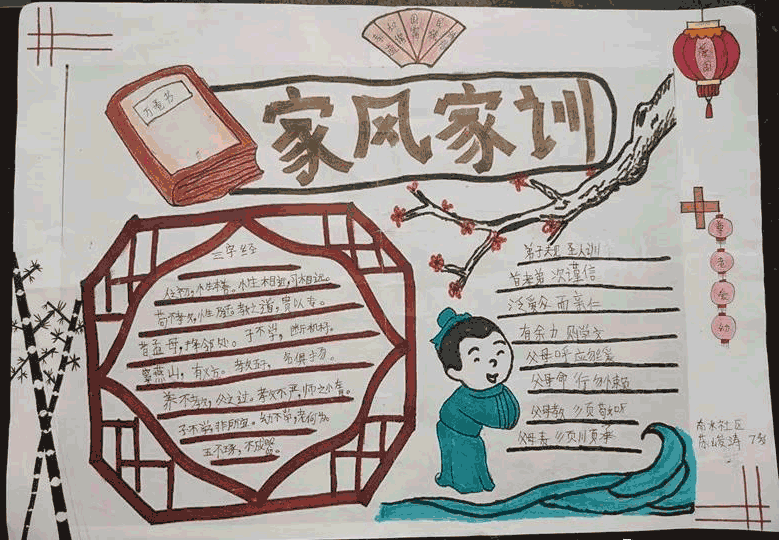 家风家训
万卷书
爱国
尊
老
爱
幼
三字经
人之初,性本善。性相近,习相远。
苟不教,性乃迁。教之道,贵以专。
昔孟母,择邻处。子不学,断机杼。
窦燕山,有义方。教五子,名俱扬。
养不教,父之过。教不严,师之惰。
子不学,非所宜。幼不学,老何为。
玉不琢,不成器。
弟子规 圣人训
首孝弟 次谨信
泛爱众 而亲仁
有余力 则学文
父母呼 应勿缓
父母命 行勿懒
父母教 须敬听
父母责 须顺承
南水社区
苏峻涛 7岁